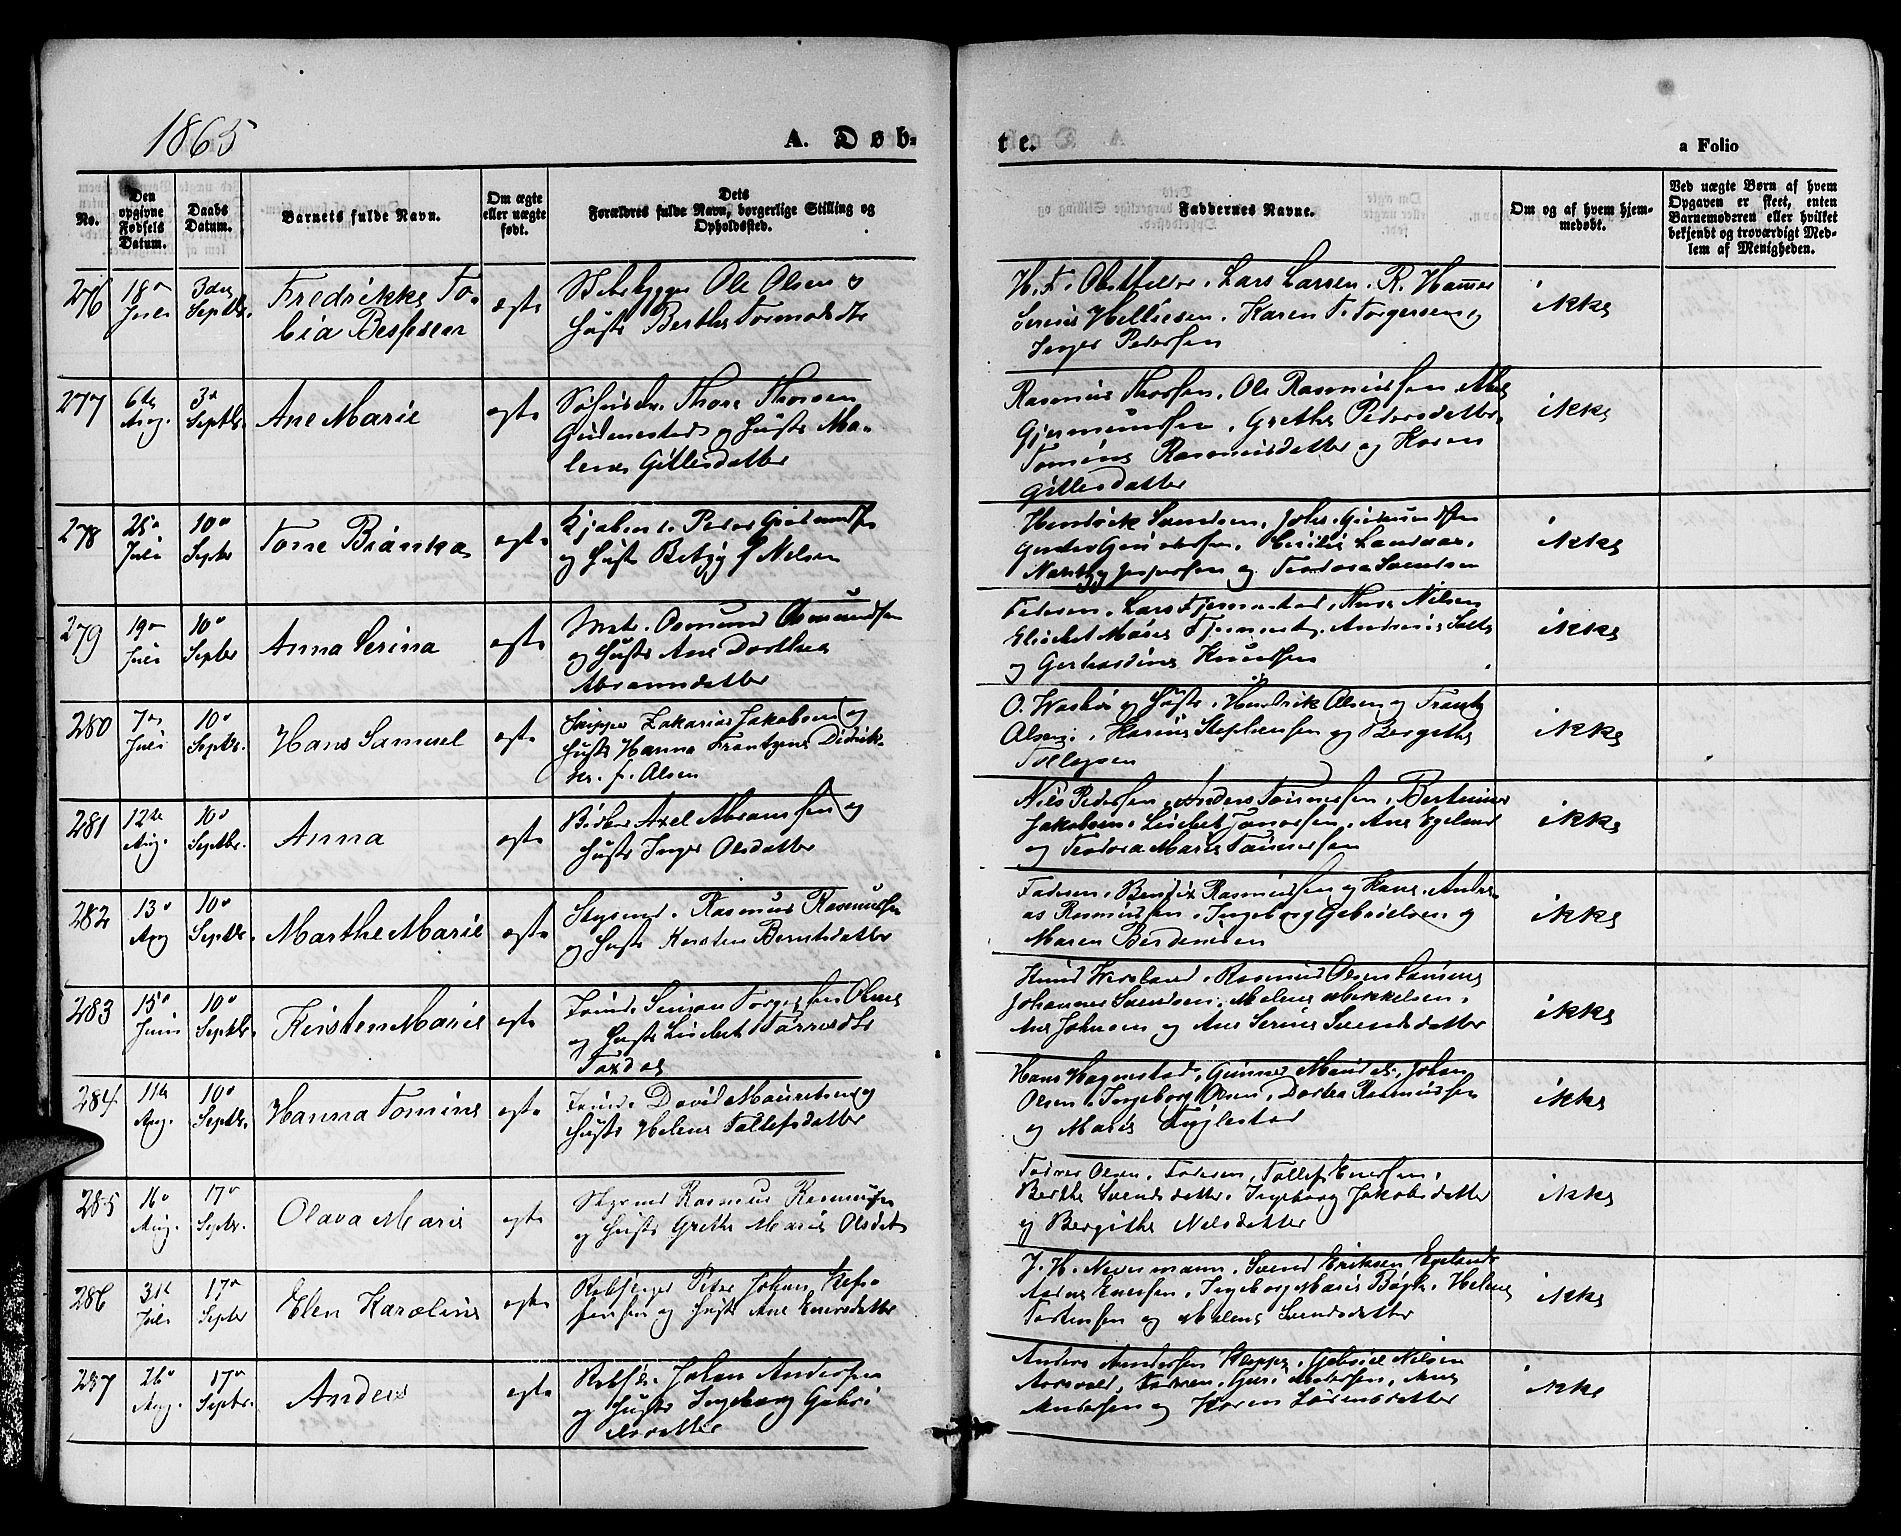 1865
A. Døb=
te.
a Folio
No.
Den opgivne Fødsels Datum.
Daabs Datum.
Barnets fulde Navn.
Om ægte eller uægte født.
Dets Forældres fulde Navn, borgerlige Stilling og Opholdssted.
Faddernes Navne.
Om og af hvem hjemmedøbt.
Ved uægte Børn af hvem Opgaven er skeet, enten Barnemoderen eller hvilket bekjendt og troværdigt Medlem af Menigheden.
276
18de Juli
3die Septbr.
Fredrikke To-
bia Bessesen
ægte
Ole Olsen &
Hustr Berthe Tormodsdtr
H. F. Obstfelder. Lars Larsen. R. Hamre
Serine Helliesen. Karen T. Torgersen og
Inger Pedersen
ikke
277
6te Aug.
3die Septbr.
Ane Marie
ægte
Thore Thorsen
og Hustr Ma-
lene Gitlesdatter
Rasmus Thorsen. Ole Rasmussen
Gjermundsen. Grethe Pedersdatter.
Tomine Rasmusdatter og Karen
Gitlesdatter
ikke
278
25de Juli
10de Septbr
Tone Bianka
ægte
Peder Gudmundsen
og Hustr Betzy f Nielsen
Hendrik Svendsen. Johs. Gudmundsen
Jespersen og Teodora Svendsen
ikke
279
19de Juli
10de Septbr
Anna Serina
ægte
Matr. Osmund Osmundsen
og Hustr Ane Dorthea
Abramsdatter
Faderen. Lars Tjemsland. Hans Nilsen
Elisabet Marie
og Gerhardine Knudsen
ikke
280
7de Juli
10de Septbr.
Hans Samuel
ægte
Skipper Zakarias Jakobsen og
Hustr Hanna Frantzine Didrik-
ke f. Olsen
O. Wasbø og Hustr. Hendrik Olsen og Frantz
Olsen. Karine Stephansen og Bergithe
Tollagsen
ikke
281
12te Aug.
10de Septbr.
Anna
ægte
Axel Abramsen og
Hustr Inger Olsdatter
Nils Pedersen. Anders Tønnessen. Bertinus
Jakobsen. Lisebet Tonnesen. Ane Egeland
og Teodora Marie Tønnessen
ikke
282
13de Aug
10de Septbr.
Marthe Marie
ægte
Rasmus Rasmussen
og Hustr Kirsten Berntsdatter
Faderen. Bendix Rasmussen og Hans. Andre-
as Rasmussen. Ingeborg Gabrielsen og
Maren Berdinesen
ikke
283
15de Juni
10de Septbr.
Kirsten Marie
ægte
Simon Torgersen
og Hustr Lisebet
Knud Hesland. Rasmus Olsen
Johannes Svendsen. Malene Mikkelsen.
Ane Johnsen og Ane Serine Svendsdatter
ikke
284
11te Aug.
10de Septbr.
Hanna Tomine
ægte
David Mauritsen og
Hustr Helene Tollefsdatter
Hans Hagenstad. Gunner Johan
Olsen. Ingeborg Olsen. Dortea Rasmussen
og Marie Fuglestad
ikke
285
16de Aug.
17de Septbr.
Olava Marie
ægte
Rasmus Rasmussen
og Hustr Grethe Marie Olsdat
Tosten Olsen. Faderen. Tollef Enersen.
Berthe Svendsdatter. Ingeborg Jakobsdatter
og Bergithe Nelsdatter
ikke
286
31te Juli
17de Septbr
Elen Karoline
ægte
Peder Johan
og Hustr Ane Enersdatter
J. H. Nevermann. Svend Eriksen Egelands
Enersen. Ingeborg Marie Helene
Tostensen og Malene Svendsdatter
ikke
287
26de Aug.
17de Septbr.
Anders
ægte
Johan Andersen
og Hustr Ingeborg Gabri-
elsdatter
Anders Andersen Kleppe. Gabriel Nilsen
Faderen. Guri Andersen. Ane
Andersen og Karen Lørensdatter
ikke